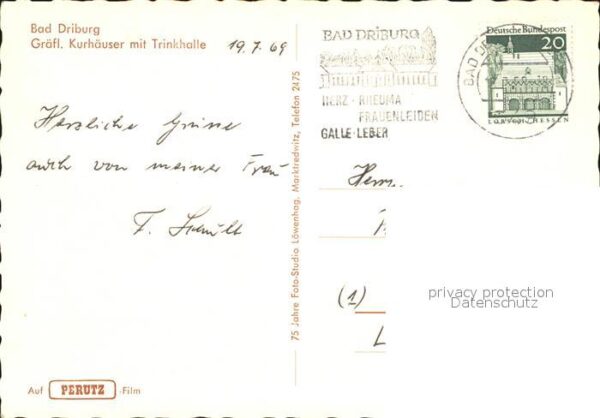 Bad Driburg
Gräfl. Kurhäuser mit Trinkhalle
19.7.69
Herzliche Grüsse
auch von meiner Frau
F. Schult
Auf PERUTZ -Film
75 Jahre Foto-Studio Löwenhag, Marktredwitz, Telefon 2475
BAD DRIBURG
HERZ · RHEUMA
FRAUENLEIDEN
GALLE · LEBER
BAD
Deutsche Bundespost
20
LORSCH/HESSEN
Herrn
(1)
privacy protection
Datenschutz